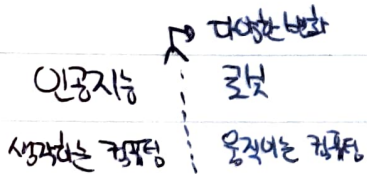 다양한 변화
인공지능 로봇
생각하는 컴퓨팅 움직이는 컴퓨팅